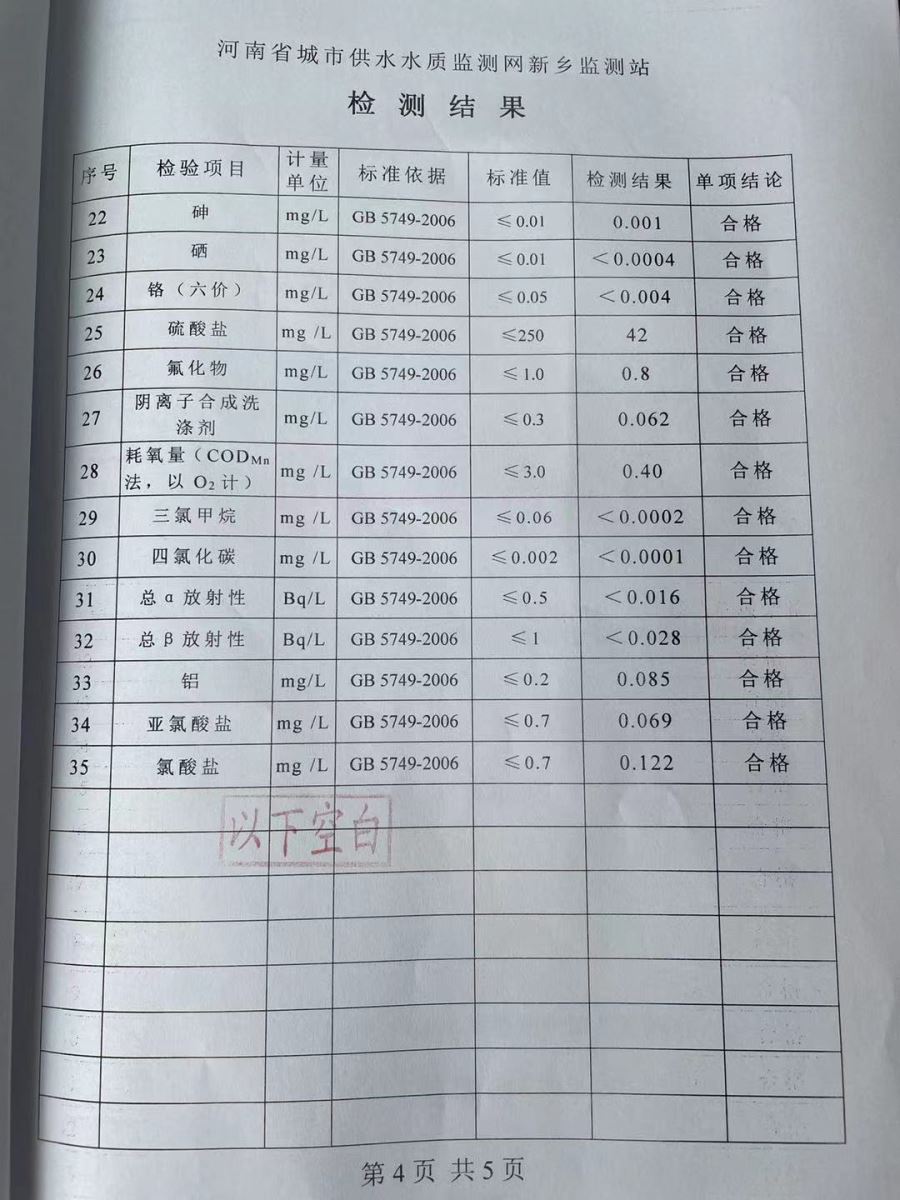 河南省城市供水水质监测网新乡监测站
检测结果
序号 检验项目 计量单位 标准依据 标准值 检测结果 单项结论
22 砷 mg/L GB 5749-2006 ≤0.01 0.001 合格
23 硒 mg/L GB 5749-2006 ≤0.01 <0.0004 合格
24 铬（六价） mg/L GB 5749-2006 ≤0.05 <0.004 合格
25 硫酸盐 mg /L GB 5749-2006 ≤250 42 合格
26 氟化物 mg/L GB 5749-2006 ≤1.0 0.8 合格
27 阴离子合成洗涤剂 mg/L GB 5749-2006 ≤0.3 0.062 合格
28 耗氧量（CODMn法，以 O2 计） mg /L GB 5749-2006 ≤3.0 0.40 合格
29 三氯甲烷 mg /L GB 5749-2006 ≤0.06 <0.0002 合格
30 四氯化碳 mg /L GB 5749-2006 ≤0.002 <0.0001 合格
31 总α放射性 Bq/L GB 5749-2006 ≤0.5 <0.016 合格
32 总β放射性 Bq/L GB 5749-2006 ≤1 <0.028 合格
33 铝 mg/L GB 5749-2006 ≤0.2 0.085 合格
34 亚氯酸盐 mg /L GB 5749-2006 ≤0.7 0.069 合格
35 氯酸盐 mg /L GB 5749-2006 ≤0.7 0.122 合格
以下空白
第4页 共5页